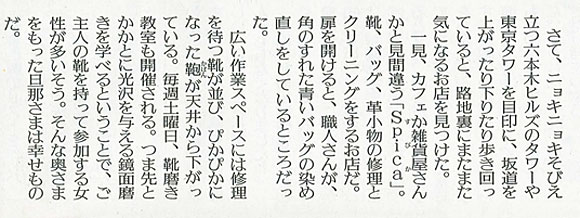 さて、ニョキニョキそびえ
立つ六本木ヒルズのタワーや
東京タワーを目印に、坂道を
上がったり下りたり歩き回っ
ていると、路地裏にまたまた
気になるお店を見つけた。
一見、カフェか雑貨屋さん
かと見間違う「Spica」。
すぴか
靴、バッグ、革小物の修理と
クリーニングをするお店だ。
扉を開けると、職人さんが、
角のすれた青いバッグの染め
直しをしているところだっ
た。
広い作業スペースには修理
を待つ靴が並び、ぴかぴかに
なった鞄が天井から下がっ
かばん
ている。毎週土曜日、靴磨き
教室も開催される。つま先と
かかとに光沢を与える鏡面磨
きを学べるということで、ご
主人の靴を持って参加する女
性が多いそう。そんな奥さま
をもった旦那さまは幸せもの
だ。